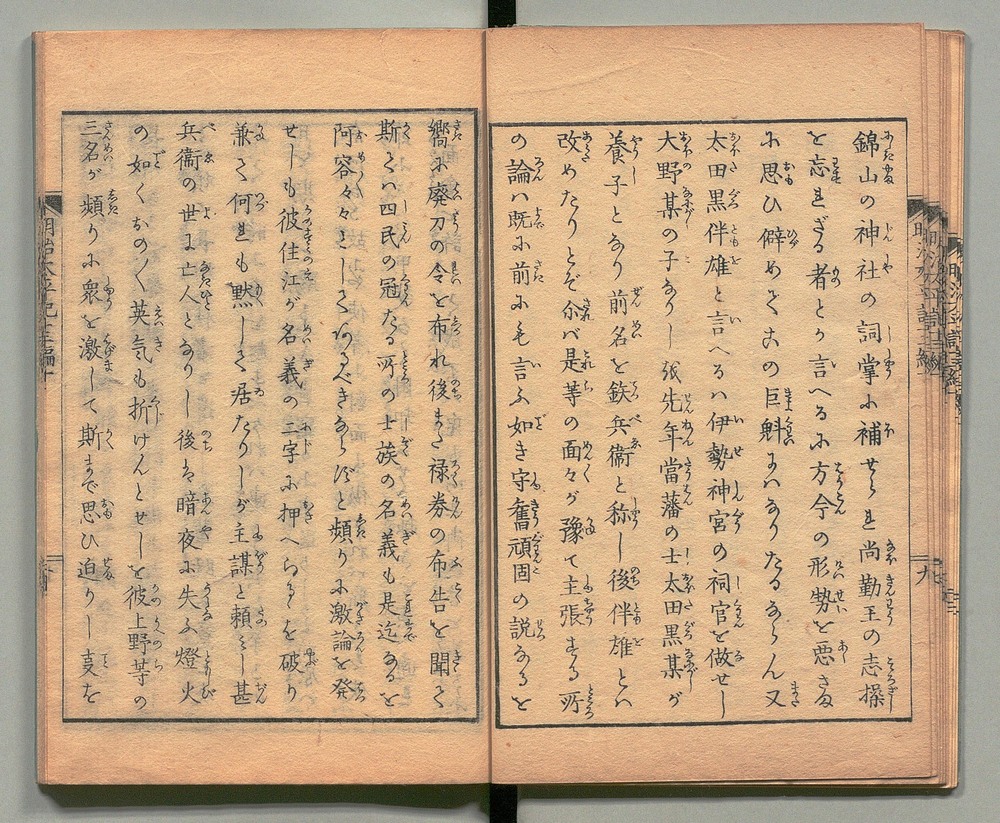 錦山の神社の詞掌に補せられ尚勤王の志操
を忘れざる者とか言へるに方今の形勢を悪さま
に思ひ僻めてこの巨魁にはなりたるならん又
太田黒伴雄と言へるは伊勢神宮の祠官を做せし
大野某の子なりしが先年當藩の士太田黒某が
養子となり前名を鉄兵衞と称し後伴雄とは
改めたりとぞ尒ば是等の面々が豫て主張する所
の論は既に前にも言ふ如き守奮頑固の説なるを
嚮に廃刀の令を布れ後また禄券の布告を聞て
斯ては四民の冠たる所の士族の名義も是迄なるを
阿容々々としてあるべきならずと頻りに激論を発
せしも彼住江が名義の二字に押へられを破り
兼て何れも黙して居たりしが主謀と頼みし甚
兵衞の世に亡人となりし後は暗夜に失ふ燈火
の如くおの〱英気も折けんとせしを彼上野等の
三名が頻りに衆を激して斯まで思ひ迫りし叓を
明治太平記十二編
九